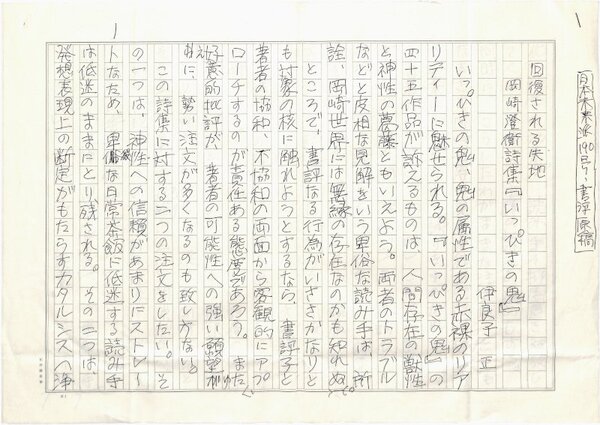 1
日本未来派190号・書評原稿
回復される失地
岡崎澄衛詩集『いっぴきの鬼』
伊良子 正
いっぴきの鬼、鬼の属性である赤裸のリア
リティーに魅せられる。『いっぴきの鬼』の
四十五作品が訴えるものは、人間存在の獣性
と神性の葛藤ともいえよう。両者のトラブル
などと皮相な見解をいう卑俗な読み手は、所
詮、岡崎世界には無縁の存在なのかも知れぬ。
ところで、書評なる行為がいささかなりと
も対象の核に触れようとするなら、書評子と
著者の協和、不協和の両面から客観的にアプ
ローチするのが責任ある態度であろう。また
好意的批評が、著者の可能性への強い願望ゆえ
に、勢い注文が多くなるのも致しかない。
この詩集に対する二つの注文をしたい。そ
の一つは、神性への信頼があまりにストレー
トなため、卑俗な日常茶飯に低迷する読み手
は低迷のままにとり残される。その二つは、
発想表現上の断定がもたらすカタルシスへ浄
1